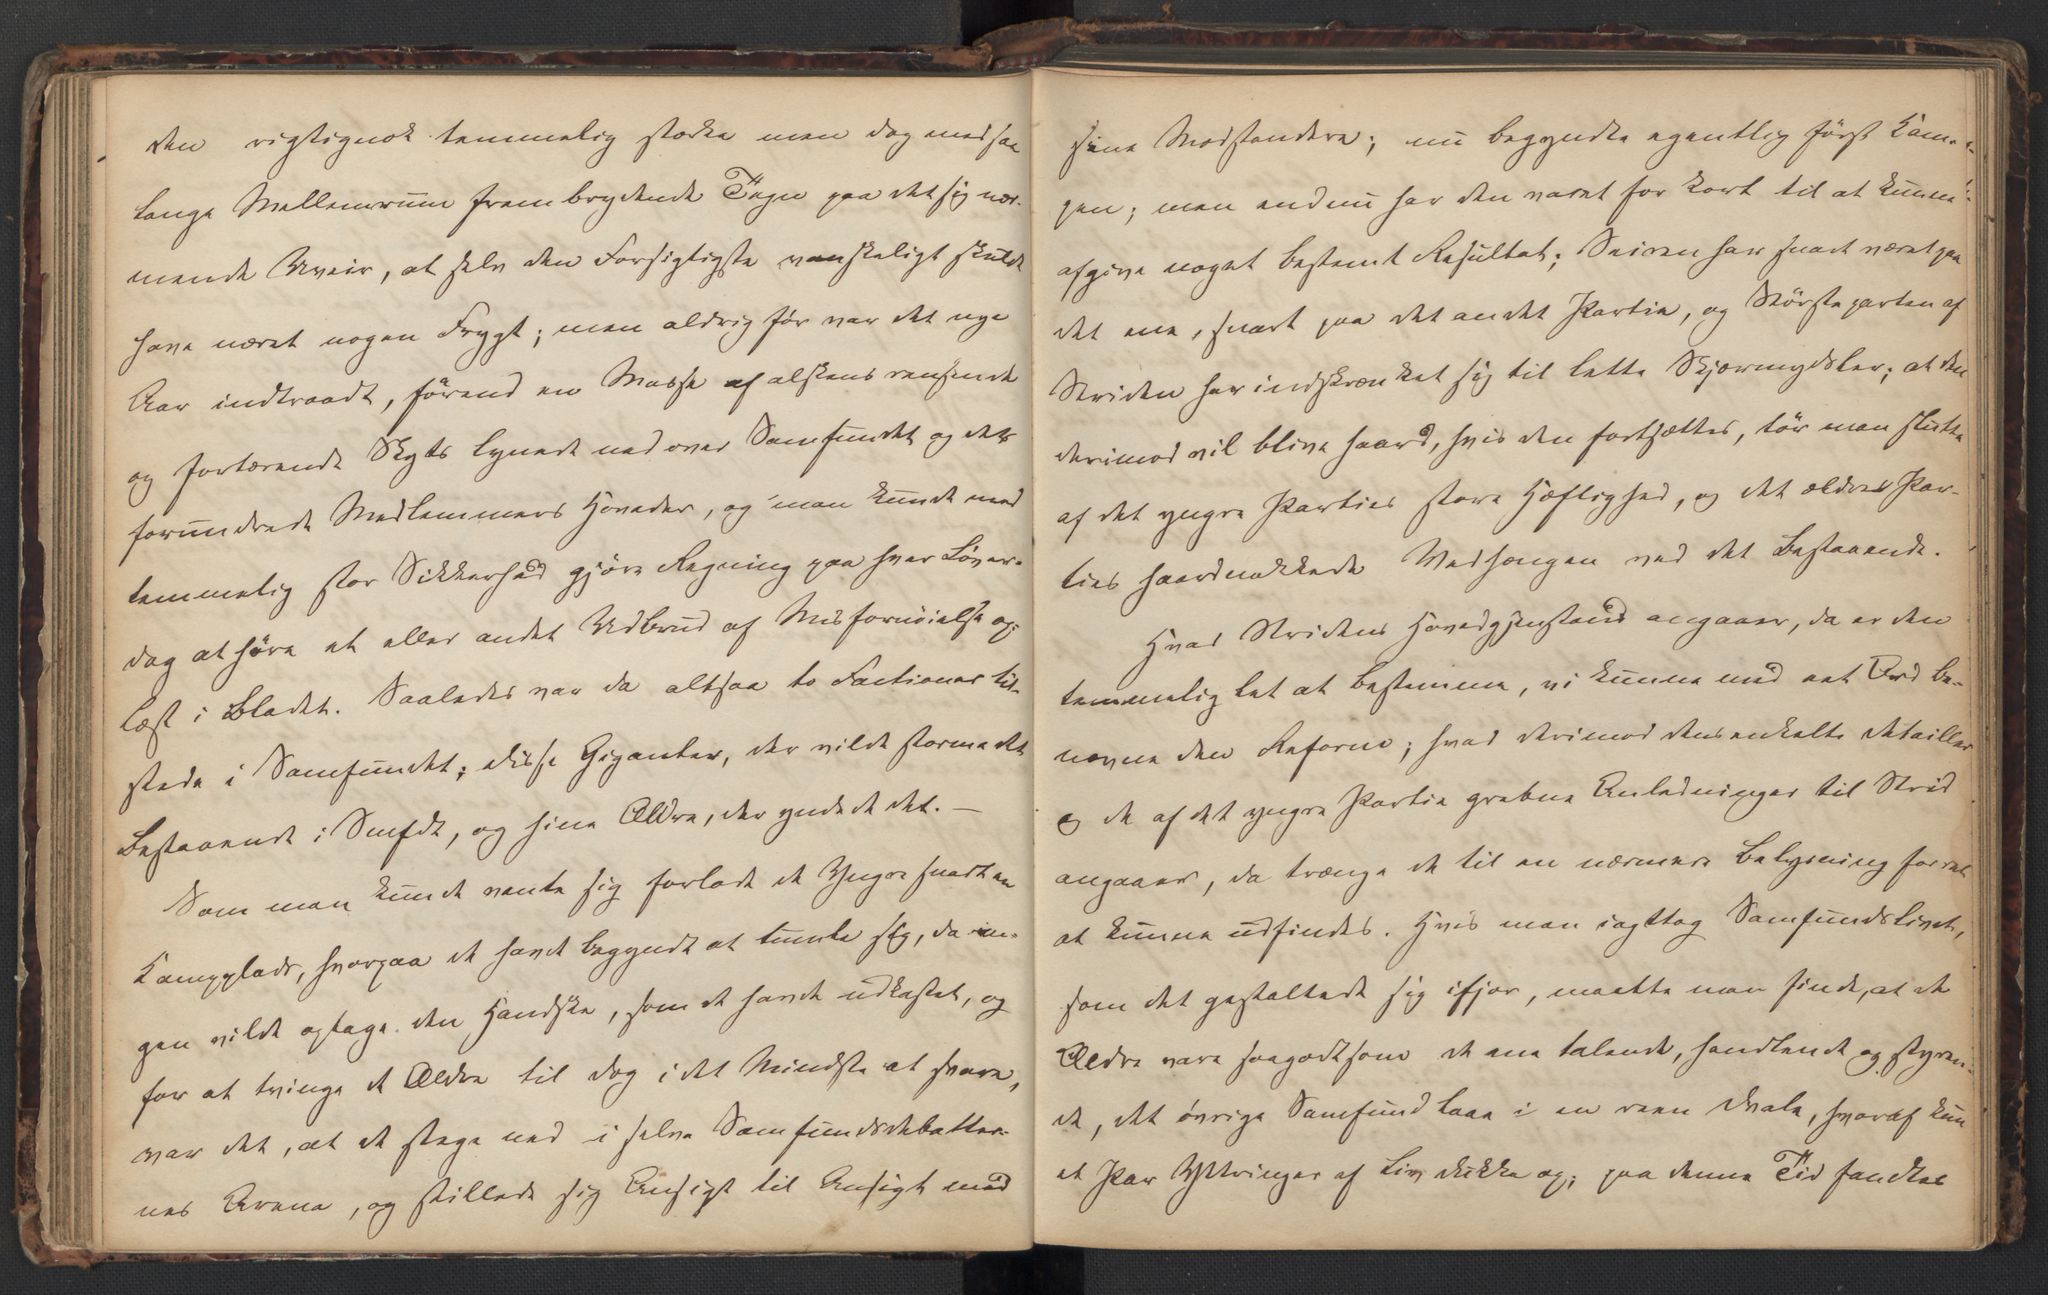 den rigtignok temmelig stærke men dog med saa
lange Mellemrum frembrydende Tegn paa det sig nær-
mende Uveir, at selv den Forsigtigste vanskeligt skulde
have næret nogen Frygt; men aldrig før var det nye
Aar indtraadt, førend en Masse af alskens rensende
og fortærende Skyts lynede ned over Samfundet og dets
forundrede Medlemmers Hoveder, og man kunde med
temmelig stor Sikkerhed gjøre Regning paa hver Løver-
dag at høre et eller andet Udbrud af Misfornøielse op-
læst i Bladet. Saaledes var da altsaa to Factioner til-
stede i Samfundet; disse Giganter, der vilde storme det
Bestaaende i Smfdt, og hine Ældre, der yndede det. —
Som man kunde vente sig forlode de Yngre snart en
Kampplads, hvorpaa de havde begyndt at tumle sig, da in-
gen vilde optage den Handske, som de havde udkastet, og
for at tvinge de Ældre til dog i det Mindste at svare,
var det, at de stege ned i selve Samfundsdebatter-
nes Arena, og stillede sig Ansigt til Ansigt med
sine Modstandere; nu begyndte egentlig først Kam-
pen; men endnu har den varet for kort til at kunne
afgive noget bestemt Resultat; Seiren har snart været paa
det ene, snart paa det andet Partie, og Størsteparten af
Striden har indskrænket sig til lette Skjærmydsler; at den
derimod vil blive haard, hvis den fortsættes, tør man slutte
af det yngre Parties store Hæftighed, og det ældres Par-
ties haardnakkede Vedhængen ved det Bestaaende.
Hvad Stridens Hovedgjenstand angaaer, da er den
temmelig let at bestemme, vi kunne med eet Ord be-
nævne den Reform; hvad derimod dens enkelte Detailler
og de af det yngre Partie grebne Anledninger til Strid
angaaer, da trænge de til en nærmere Belysning for ret
at kunne udfindes. Hvis man iagttog Samfundslivet,
som det gestaltede sig ifjor, maatte man finde, at de
Ældre vare saagodtsom de ene talende, handlende og styren-
de, det øvrige Samfund laae i en reen Dvale, hvoraf kun
et Par Yttringer af Liv dukke op; paa denne Tid fandtes